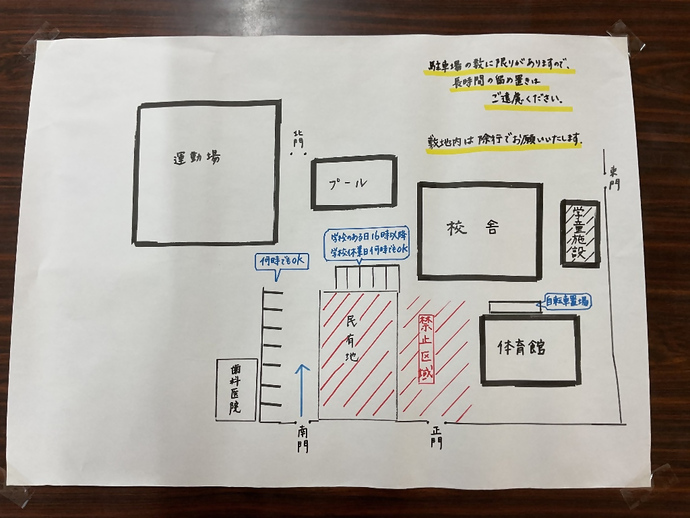 駐車場の数に限りがありますので、
長時間の留め置きは
ご遠慮ください。
敷地内は除行でお願いいたします。
北門
運動場
プール
東門
校舎
学童施設
学校のある日16時以降
学校休業日何時でもOK
何時でもOK
自転車置場
民有地
禁止区域
体育館
歯科医院
南門
正門